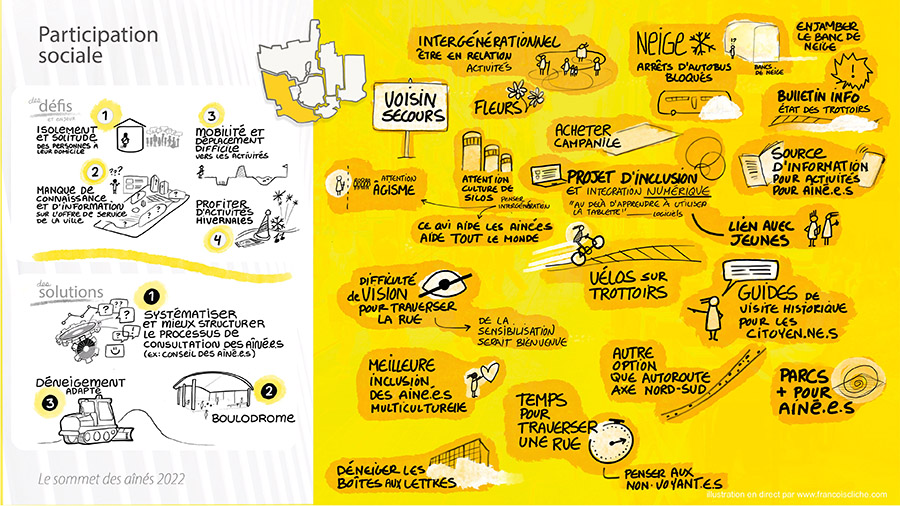 Participation
sociale
des
défis
ET ENJEUX
1
ISOLEMENT
ET SOLITUDE
DES PERSONNES À
LEUR DOMICILE
2
???
MANQUE DE
CONNAISSANCE
ET D'INFORMATION
SUR L'OFFRE DE SERVICE
DE LA VILLE
3
MOBILITÉ ET
DÉPLACEMENT
DIFFICILE
VERS LES ACTIVITÉS
PROFITER
D'ACTIVITÉS
HIVERNALES
4
des
solutions
1
SYSTÉMATISER
ET MIEUX STRUCTURER
LE PROCESSUS DE
CONSULTATION DES AÎNÉ.E.S
(EX: CONSEIL DES AÎNÉ.E.S)
DÉNEIGEMENT
ADAPTÉ
3
2
BOULODROME
Le sommet des aînés 2022
INTERGÉNÉRATIONNEL
ÊTRE EN RELATION
ACTIVITÉS
VOISIN
SECOURS
FLEURS
NEIGE
ARRÊTS D'AUTOBUS
BLOQUÉS
BANCS DE NEIGE
ENJAMBER
LE BANC DE
NEIGE
BULLETIN INFO
ÉTAT DES TROTTOIRS
ACHETER
CAMPANILE
ATTENTION
ÂGISME
ATTENTION
CULTURE DE
SILOS
PENSER
INTERGÉNÉRATION
CE QUI AIDE LES AINÉES
AIDE TOUT LE MONDE
PROJET D'INCLUSION
ET INTÉGRATION NUMÉRIQUE
"AU DELÀ D'APPRENDRE À UTILISER
LA TABLETTE"
LOGICIELS
SOURCE
D'INFORMATION
POUR ACTIVITÉS
POUR AINÉ.E.S
LIEN AVEC
JEUNES
VÉLOS SUR
TROTTOIRS
DIFFICULTÉ
de VISION
POUR TRAVERSER
LA RUE
DE LA
SENSIBILISATION
SERAIT BIENVENUE
GUIDES DE
VISITE HISTORIQUE
POUR LES
CITOYEN.NE.S
MEILLEURE
INCLUSION
DES AINÉ.E.S
MULTICULTURELLE
TEMPS
POUR
TRAVERSER
UNE RUE
PENSER AUX
NON-VOYANT.E.S
AUTRE
OPTION
QUE AUTOROUTE
AXE NORD-SUD
PARCS
+ POUR
AINÉ.E.S
DÉNEIGER LES
BOÎTES AUX LETTRES
illustration en direct par www.francoiscliche.com